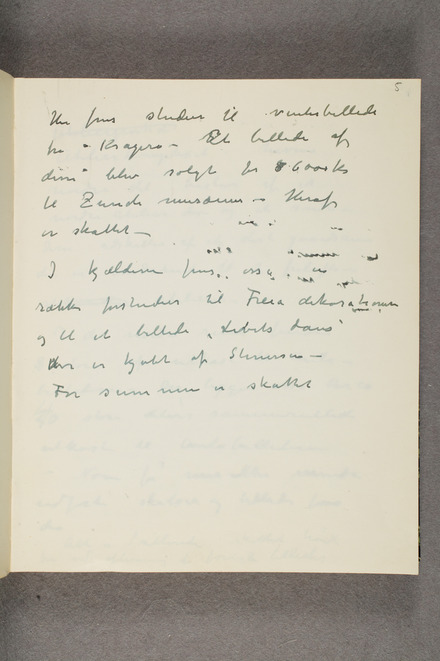 5
Her fins studier til vinterbillede
fra – Kragerø – Et billede af
disse blev solgt for 86000 ks
til Zürich museum – Heraf
er skattet –
I kjælderen fins også en
række forstudier til Freia dekorationen
og til et billede „Livets dans"
der er kjøbt af Stenersen –
For summen er skattet